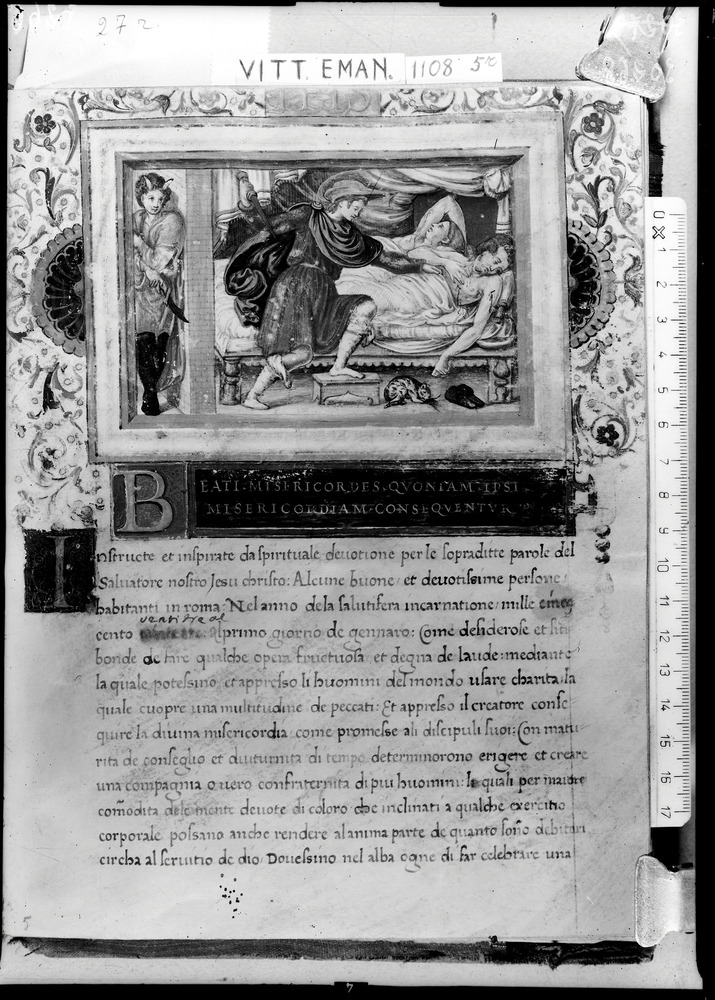 27 r
VITT. EMAN. 1108 5r
BEATI·MISERICORDES·QVONIAM·IPSI
MISERICORDIAM·CONSEQVENTVR
Instructe et inspirate da spirituale deuotione per le sopraditte parole del
Saluatore nostro Jesu christo: Alcune buone et deuotissime persone
habitanti in roma: Nel anno dela salutifera incarnatione mille cinq
ventitre al
cento primo giorno de gennaro: Come desiderose et siti
bonde de fare qualche opera fructuosa et degna de laude: mediante
la quale potessino et appresso li huomini del mondo usare charita: la
quale cuopre una multitudine de peccati: Et appresso il creatore conse
quire la diuina misericordia come promesse ali discipuli suoi: Con matu
rita de conseglio et diuturnita di tempo determinorono erigere et creare
una compagnia o uero confraternita di piu huomini: li quali per maiore
comodita dele mente deuote di coloro che inclinati a qualche exercitio
corporale possano anche rendere al anima parte de quanto sono debituri
circha al seruitio de dio: Douessino nel alba ogne di far celebrare una
5
0 1 2 3 4 5 6 7 8 9 10 11 12 13 14 15 16 17